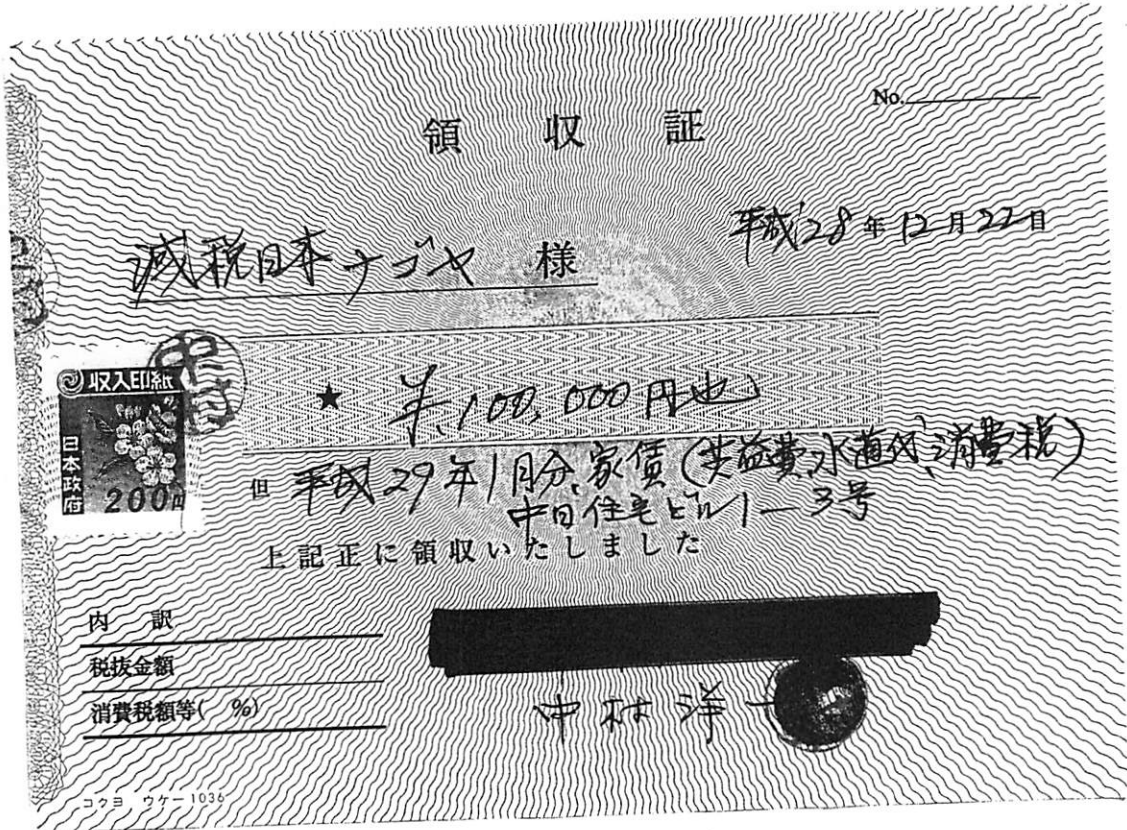 No.
領収証
平成28年12月22日
減税日本ナゴヤ 様
収入印紙
日本政府
200円
★ ¥.100,000円也
但 平成29年1月分、家賃(共益費、水道代、消費税)
中日住宅ビル1―3号
上記正に領収いたしました
内訳
税抜金額
消費税額等( %)
中村洋一
コクヨ ウケ-1036